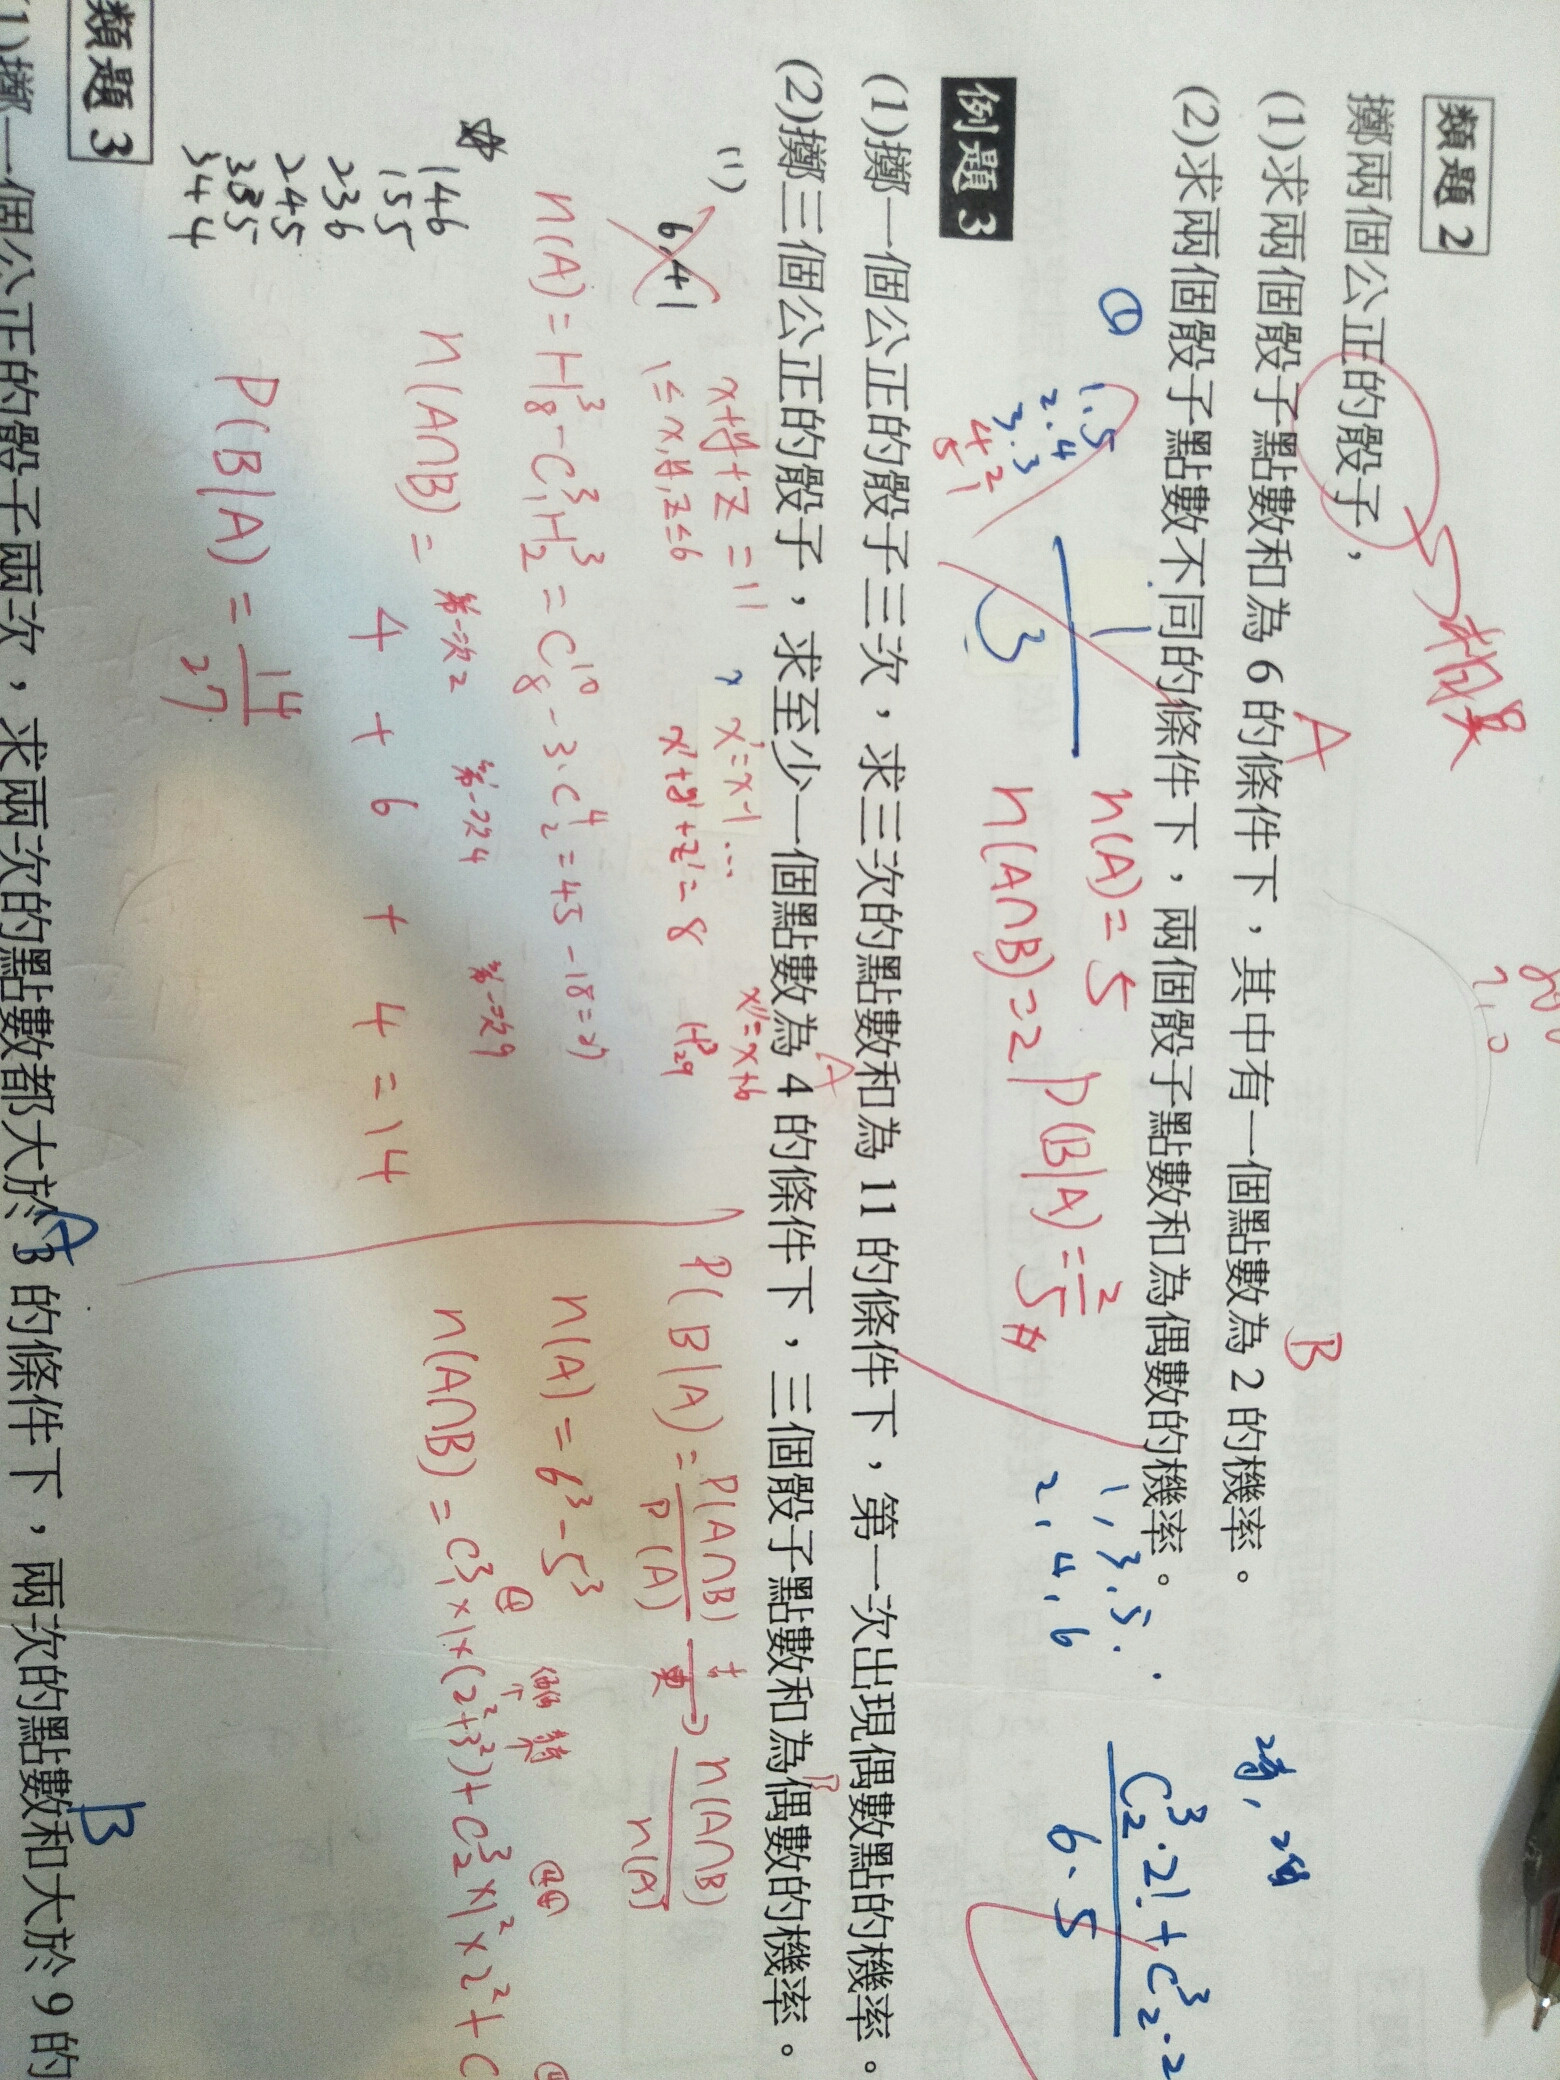 類題 2
擲兩個公正的骰子，
→相異
(1)求兩個骰子點數和為 6 的條件下，其中有一個點數為 2 的機率。
A
B
(2)求兩個骰子點數不同的條件下，兩個骰子點數和為偶數的機率。
①
1.5
2.4
3.3
4 2
5 1
1
3
n(A)=5
n(A∩B)=2
P(B|A)=2/5 #
1,3,5.
2,4,6
2奇,2偶
C³₂·2!+C³₂·2
6·5
例題 3
(1)擲一個公正的骰子三次，求三次的點數和為 11 的條件下，第一次出現偶數點的機率。
(2)擲三個公正的骰子，求至少一個點數為 4 的條件下，三個骰子點數和為偶數的機率。
A
(1)
6,4,1
x+y+z=11
1≤x,y,z≤6
x'=x-1 ...
x'+y'+z'=8
n(A)=H³₈-C³₁H³₂=C¹⁰₈-3·C⁴₂=45-18=27
n(A∩B)=
4 + 6 + 4 =14
P(B|A)=14/27
☆
146
155
236
245
335
344
P(B|A)=P(A∩B)/P(A)
n(A∩B)/n(A)
n(A)=6³-5³
n(A∩B)=C³₁×1×(2²+3²)+C³₂×1²×2²+C
類題 3
(1)擲一個公正的骰子兩次，求兩次的點數都大於 3 的條件下，兩次的點數和大於 9 的
A
B